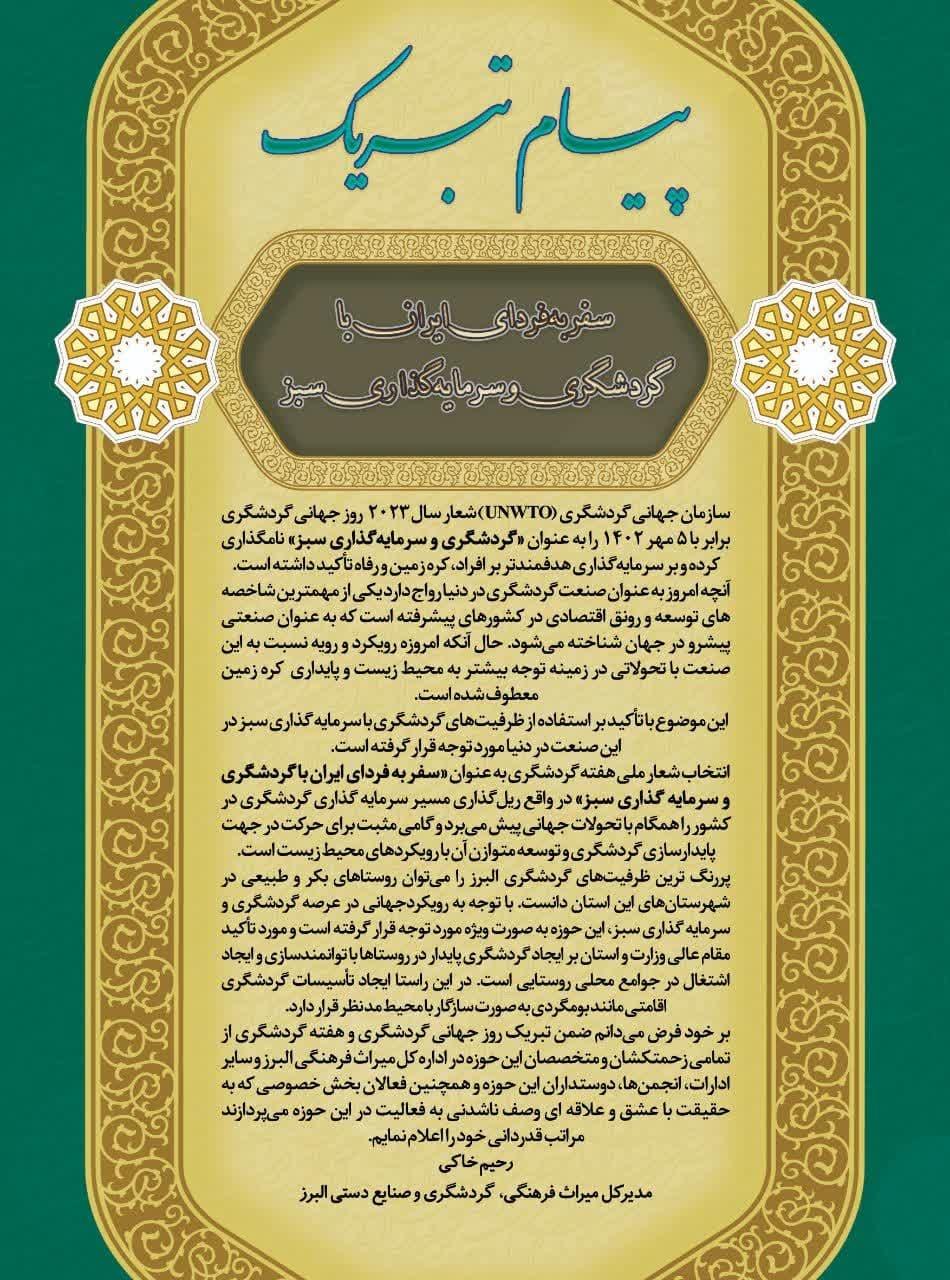 پیام تبریک
سفر به فردای ایران با
گردشگری و سرمایه‌گذاری سبز
سازمان جهانی گردشگری (UNWTO) شعار سال ۲۰۲۳ روز جهانی گردشگری
برابر با ۵ مهر ۱۴۰۲ را به عنوان «گردشگری و سرمایه‌گذاری سبز» نامگذاری
کرده و بر سرمایه‌گذاری هدفمندتر بر افراد، کره زمین و رفاه تأکید داشته است.
آنچه امروز به عنوان صنعت گردشگری در دنیا رواج دارد یکی از مهمترین شاخصه
های توسعه و رونق اقتصادی در کشورهای پیشرفته است که به عنوان صنعتی
پیشرو در جهان شناخته می‌شود. حال آنکه امروزه رویکرد و رویه نسبت به این
صنعت با تحولاتی در زمینه توجه بیشتر به محیط زیست و پایداری کره زمین
معطوف شده است.
این موضوع با تأکید بر استفاده از ظرفیت‌های گردشگری با سرمایه گذاری سبز در
این صنعت در دنیا مورد توجه قرار گرفته است.
انتخاب شعار ملی هفته گردشگری به عنوان «سفر به فردای ایران با گردشگری
و سرمایه گذاری سبز» در واقع ریل‌گذاری مسیر سرمایه گذاری گردشگری در
کشور را همگام با تحولات جهانی پیش می‌برد و گامی مثبت برای حرکت در جهت
پایدارسازی گردشگری و توسعه متوازن آن با رویکردهای محیط زیست است.
پررنگ ترین ظرفیت‌های گردشگری البرز را می‌توان روستاهای بکر و طبیعی در
شهرستان‌های این استان دانست. با توجه به رویکردجهانی در عرصه گردشگری و
سرمایه گذاری سبز، این حوزه به صورت ویژه مورد توجه قرار گرفته است و مورد تأکید
مقام عالی وزارت و استان بر ایجاد گردشگری پایدار در روستاها با توانمندسازی و ایجاد
اشتغال در جوامع محلی روستایی است. در این راستا ایجاد تأسیسات گردشگری
اقامتی مانند بومگردی به صورت سازگار با محیط مدنظر قرار دارد.
بر خود فرض می‌دانم ضمن تبریک روز جهانی گردشگری و هفته گردشگری از
تمامی زحمتکشان و متخصصان این حوزه در اداره کل میراث فرهنگی البرز و سایر
ادارات، انجمن‌ها، دوستداران این حوزه و همچنین فعالان بخش خصوصی که به
حقیقت با عشق و علاقه ای وصف ناشدنی به فعالیت در این حوزه می‌پردازند
مراتب قدردانی خود را اعلام نمایم.
رحیم خاکی
مدیرکل میراث فرهنگی، گردشگری و صنایع دستی البرز